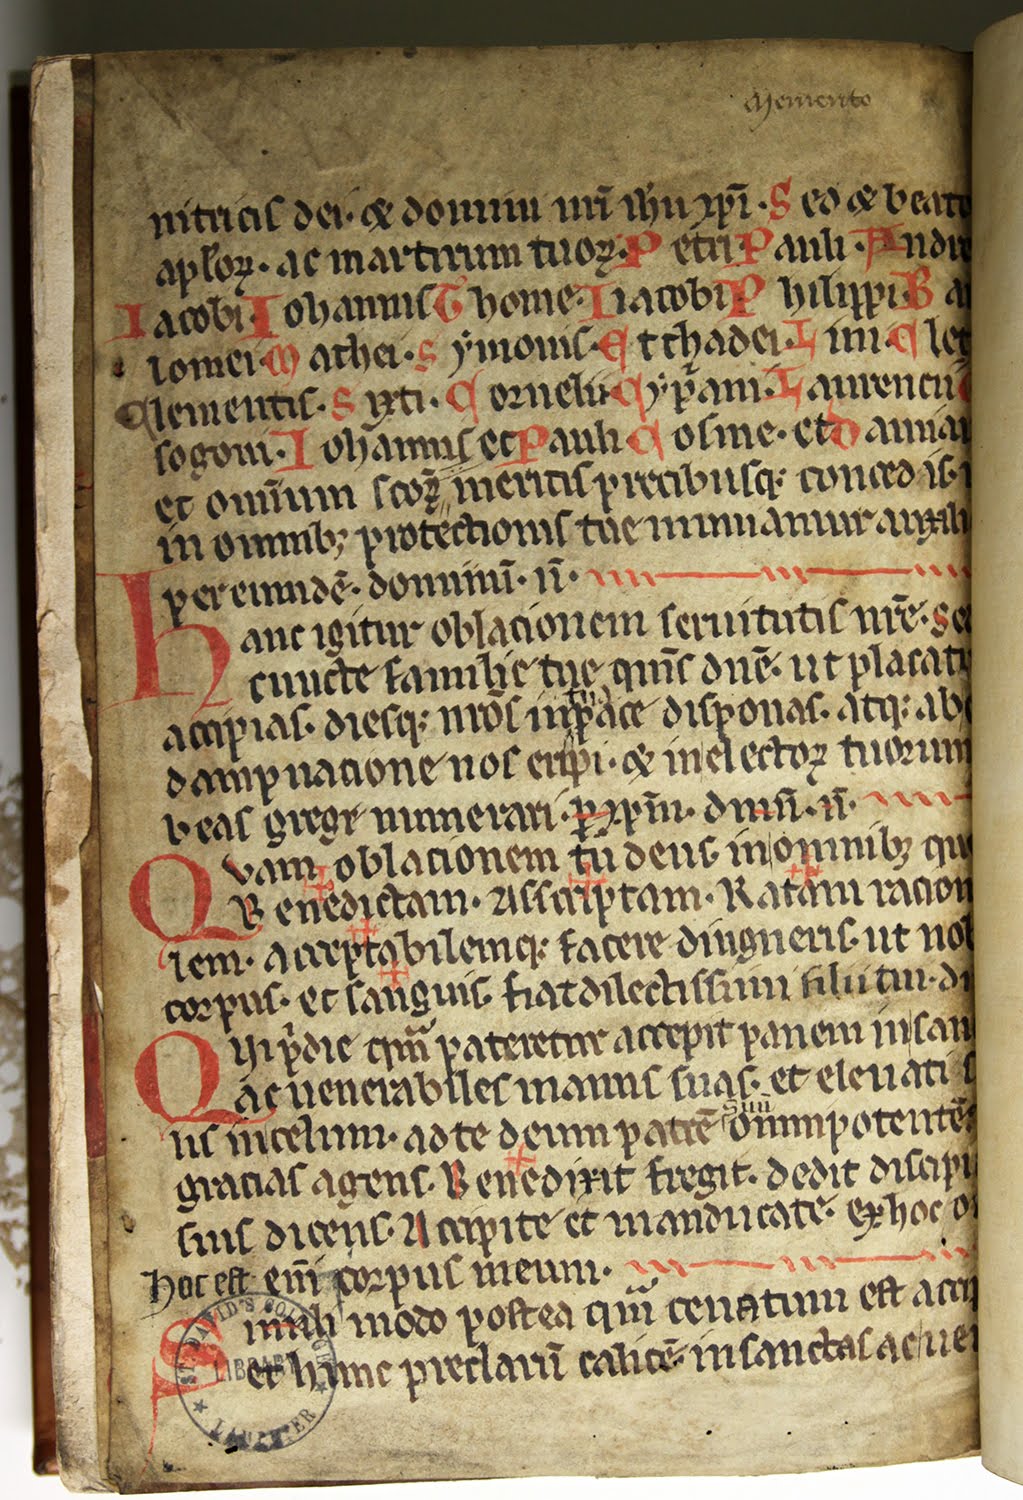 Memento
nitricis dei · & domini nr̄i ih̄u xp̄i · Sed & beato
apl̓oꝝ · ac martirum tuoꝝ · Petri Pauli · Andre
Iacobi · Iohannis Thome · Iiacobi · Philippi · Ba
lomei Mathei · Sẏmonis · Et thadei · Lini · Clet
Clementis · Sixti · Cornelii Cyp̓ani · Laurencii
sogoni · Iohannis et Pauli Cosme · et Damian
et omīum sc̄oꝝ meritis precibusq; conced is ·
in omnib; protectionis tue muniamur auxili
per eundē · dominū · n̄ ·
Hanc igitur oblacionem seruitutis nr̄e · Se
cuncte familie tue quis̄ dn̄e · ut placat
tua
accipias · diesq; nr̄os in pace disponas · atq; ab
dampnacione nos eripi · & in electoꝝ tuorum
beas grege numerari · ꝑ xp̄m · dnm̄ · n̄ ·
Qvam oblacionem tu deus in omnib; qu
Benedictam · Asscriptam · Ratam racion
lem · acceptabilemq; facere dingneris · ut nob
corpus · et sanguis · fiat dilectissimi filii tui · d
Qui p̓die qm̄ pateretur accepit panem in san
ac uenerabiles manus suas · et eleuati s
suū
us in celum · ad te deum patrē omnipotentē
gracias agens · Benedixit fregit · dedit discipu
suis dicens · Accipite et manducate · ex hoc o
hoc est enī corpus meum ·
Simili modo postea qm̄ cenatum est acci
et hunc preclarū calicē · in sanctas ac ue
ST. DAVID'S COLLEGE
LIBRARY
LAMPETER